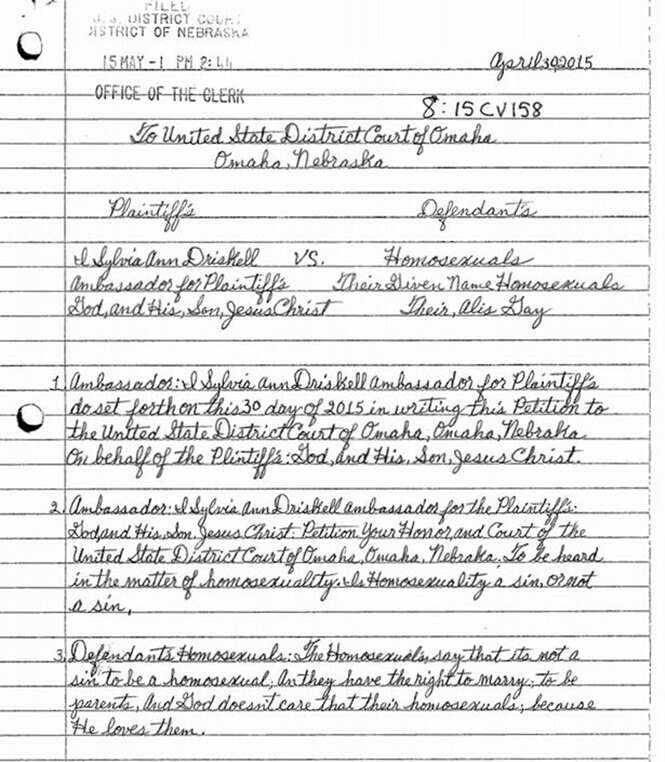 FILED
U.S. DISTRICT COURT
DISTRICT OF NEBRASKA
15 MAY -1 PM 2:44
OFFICE OF THE CLERK
April 30, 2015
8:15CV158
To United State District Court of Omaha
Omaha, Nebraska
Plaintiff's Defendant's
I Sylvia Ann Driskell VS. Homosexuals
Ambassador for Plaintiff's Their Given Name Homosexuals
God, and His, Son, Jesus Christ Their, Alis Gay
1. Ambassador: I Sylvia Ann Driskell Ambassador for Plaintiff's
do set forth on this 30 day of 2015 in writing this Petition to
the United State District Court of Omaha, Omaha, Nebraka
On behalf of the Plintiff's: God, and His, Son, Jesus Christ.
2. Ambassador: I Sylvia Ann Driskell ambassador for the Plaintiff's:
God and His, Son, Jesus Christ. Petition Your Honor, and Court of the
United State District Court of Omaha, Omaha, Nebraka. To be heard
in the matter of homosexuality. Is Homosexuality a sin, or not
a sin,
3. Defendant's Homosexuals: The Homosexuals, say that its not a
sin to be a homosexual; An they have the right to marry; to be
parents, And God doesn't care that their homosexuals; because
He loves them.